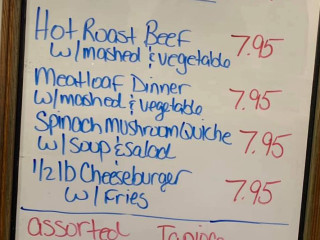 Hot Roast Beef
w/mashed & vegetable 7.95
Meatloaf Dinner
w/mashed & vegetable 7.95
Spinach Mushroom Quiche
w/soup & salad 7.95
1/2 lb Cheeseburger
w/ Fries 7.95
assorted Tapioca